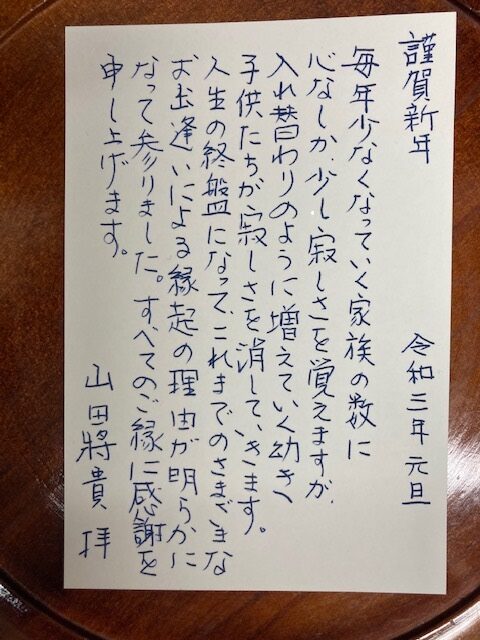 謹賀新年
令和三年 元旦
毎年少なくなっていく家族の数に
心なしか、少し寂しさを覚えますが、
入れ替わりのように増えていく幼き
子供たちが寂しさを消していきます。
人生の終盤になって、これまでのさまざまな
お出逢いによる縁起の理由が明らかに
なって参りました。すべてのご縁に感謝を
申し上げます。
山田將貴 拝